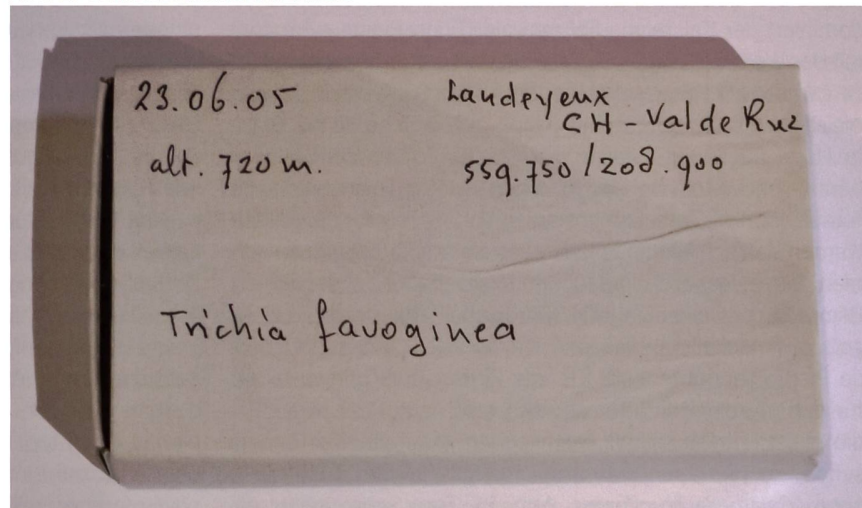 23.06.05
Landeyeux
CH - Val de Ruz
alt. 720 m.
559.750 / 208.900
Trichia favoginea